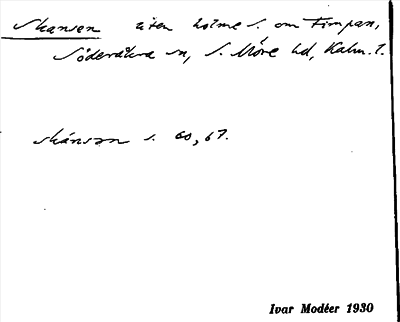 Skansen liten holme S. om Fimpan,
Söderåkra sn, S. Möre hd, Kalm. l.
skánsən s. 60, 67.
Ivar Modéer 1930